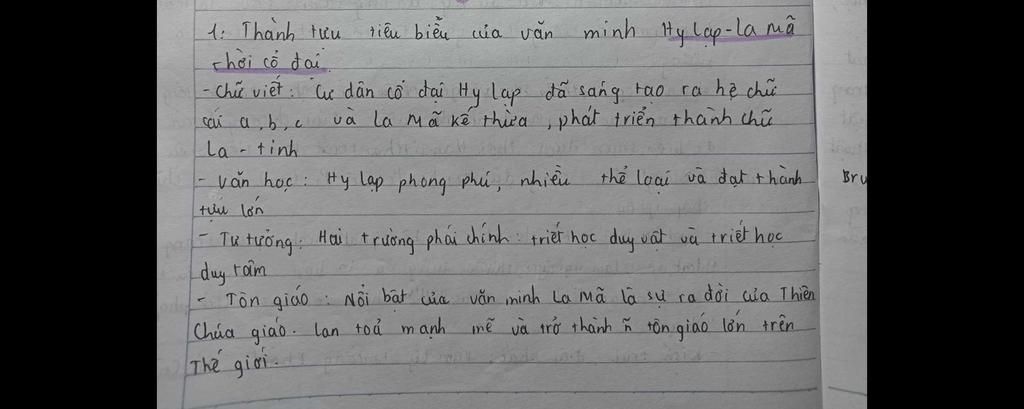 1: Thành tưu tiêu biểu của văn minh Hy Lạp-La Mã
thời cổ đại.
- Chữ viết: Cư dân cổ đại Hy Lạp đã sáng tạo ra hệ chữ
cái a, b, c và La Mã kế thừa, phát triển thành chữ
La-tinh
- Văn học: Hy Lạp phong phú, nhiều thể loại và đạt thành
tựu lớn
- Tư tưởng: Hai trường phái chính: triết học duy vật và triết học
duy tâm
- Tôn giáo: Nổi bật của văn minh La Mã là sự ra đời của Thiên
Chúa giáo. Lan toả mạnh mẽ và trở thành ñ tôn giáo lớn trên
Thế giới.
Bru